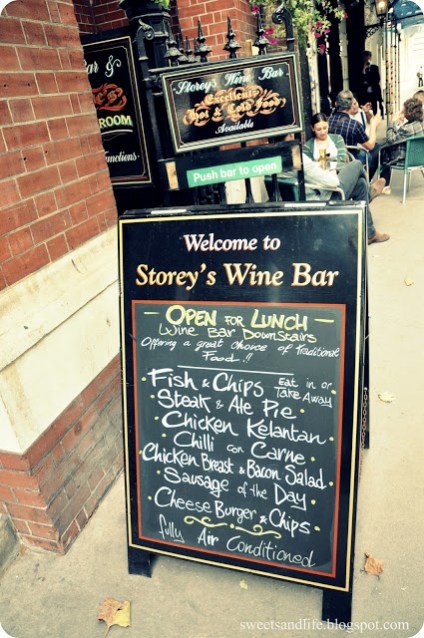 Bar &
ROOM
Functions
Storey's Wine Bar
Excellent
Hot & Cold Food
Available
Push bar to open
Welcome to
Storey's Wine Bar
- OPEN FOR LUNCH -
Wine Bar DownStairs
Offering a great choice of Traditional
Food !!
Fish & Chips Eat in or
Take Away
Steak & Ale Pie
Chicken Kelantan
Chilli con Carne
Chicken Breast & Bacon Salad
Sausage of the Day
Cheese Burger & Chips
fully Air Conditioned
sweetsandlife.blogspot.com